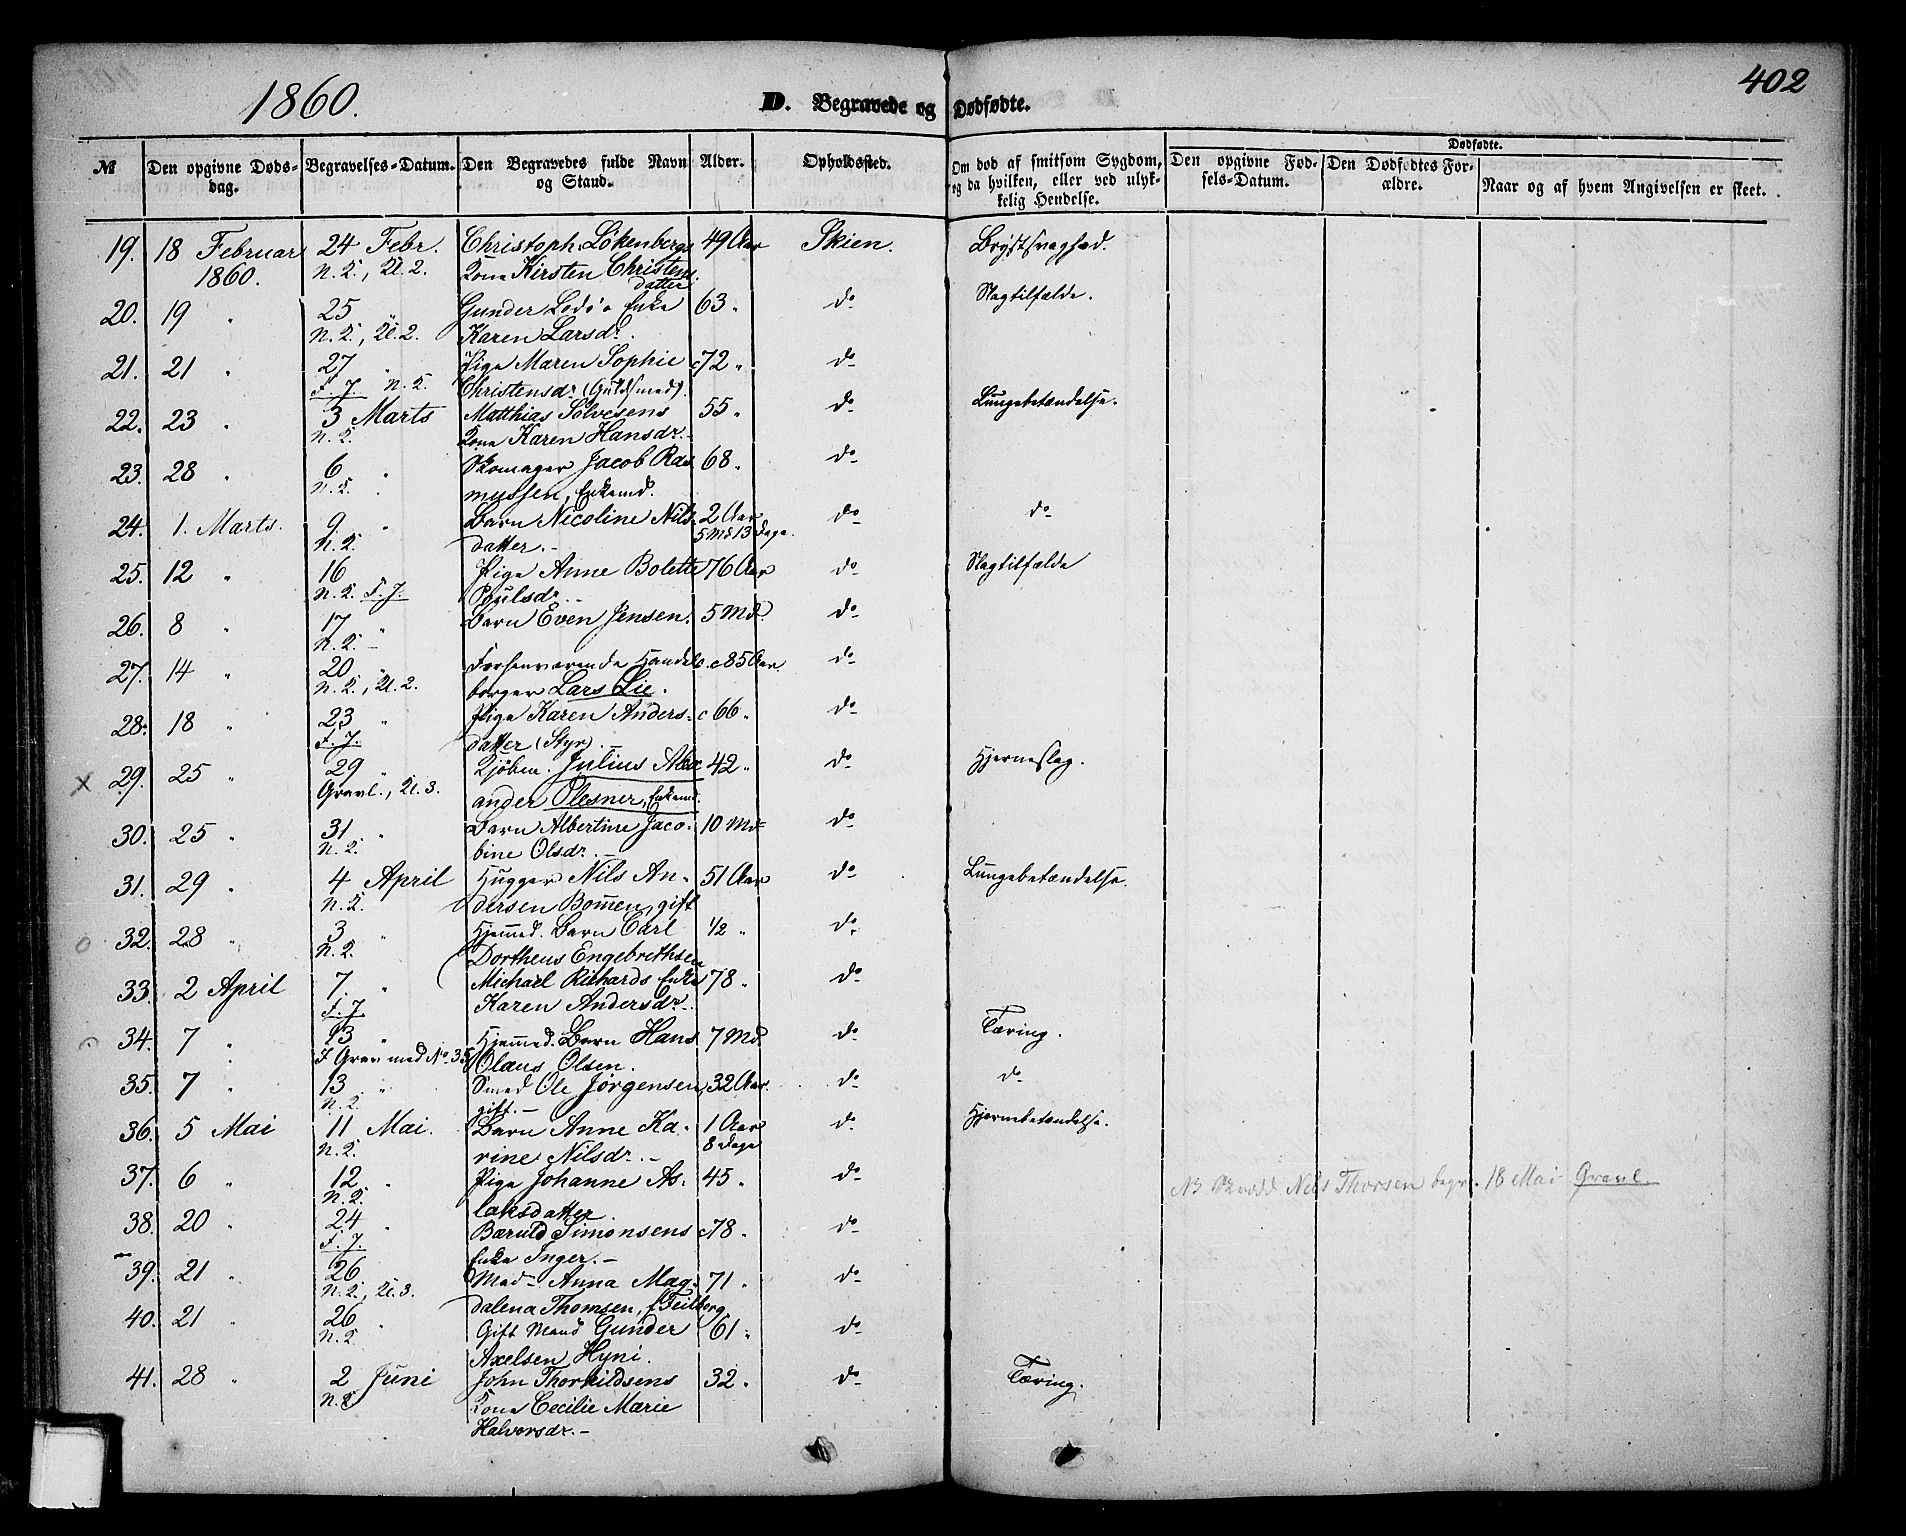 1860.
D. Begravede og Dødfødte.
402
№ Den opgivne Døds-dag. Begravelses-Datum. Den Begravedes fulde Navn og Stand. Alder. Opholdssted. Om død af smitsom Sygdom, og da hvilken, eller ved ulyk-kelig Hendelse. Dødfødte. Den opgivne Fød-sels-Datum. Den Dødfødtes For-ældre. Naar og af hvem Angivelsen er skeet.
19. 18 Februar 24 Febr. Christoph. Løkenbergs 49 Aar Skien. Brystsvaghed.
1860. N.K., Kl. 2. Kone Kirsten Christens
datter
20. 19 " 25 " Gunder Lodö's Enke 63 " do Slagtilfælde.
N.K., Kl. 2. Karen Larsdr.
21. 21 " 27 " Pige Maren Sophie c72 " do
F. J. N.K. Christensdr (Guldsmed).
22. 23 " 3 Marts Matthias Solvesens 55 " do Lungebetændelse.
N.K. Kone Karen Hansdr. -
23. 28 " 6 " Skomager Jacob Ras 68 " do
N.K. mussen, Enkemd.
24. 1. Marts. 9 " Barn Nicoline Nils- 2 Aar do do
N.K. datter. - 5 Md 13 Dage.
25. 12 " 16 Pige Anne Bolette 76 Aar do Slagtilfælde
N.K. F. J. Poulsdr. -
26. 8 " 17 " Barn Even Jensen. 5 Md. do
N.K. -
27. 14 " 20 " Forhenværende Handels c85 Aar do
N.K., Kl. 2. borger Lars Lie.
28. 18 " 23 " Pige Karen Anders- c66 " do
F. J. datter (Styr).
x 29. 25 " 29 " Kjøbm. Julius Alex 42 " do Hjerneslag.
Gravl., Kl. 3. ander Plesner, Enkemd.
30. 25 " 31 " Barn Albertine Jaco- 10 Md do
N.K. bine Olsdr. -
31. 29 " 4 April Hugger Nils An- 51 Aar do Lungebetændelse.
N.K. dersen Bommen, gift
o 32. 28 " 3 " Hjemmed. Barn Carl 1/2 " do
N.K. Dortheus Engebrethsen
33. 2 April 7. " Michael Richards Enke 78 " do
F. J. Karen Andersdr. -
o 34. 7 " 13 " Hjemmed. Barn Hans 7 Md. do Tæring.
I Grav med No 35 Olaus Olsen.
35. 7 " 13 " Smed Ole Jørgensen, 32 Aar. do do
N.K. gift. -
36. 5 Mai 11 Mai. Barn Anne Ka- 1 Aar do Hjernebetændelse.
N.K. rine Nilsdr. - 8 Dage
37. 6 " 12 " Pige Johanne As- 45 " do NB Nils Thorsen begr. 18 Mai Gravl.
N.K. laksdatter
38. 20 " 24 " Baruld Simonsens c78 " do
F. J. Enke Inger. -
39. 21 " 26 " Mad- Anna Mag- 71 " do
N.K., Kl. 3. dalena Thomsen, f. Feilberg
40. 21 " 26 " Gift Mand Gunder 61 " do
N.K. Axelsen Hyni.
41. 28 " 2 Juni John Thorkildsens 32 " do Tæring.
N.K. Kone Cecilie Marie
Halvorsdr. -